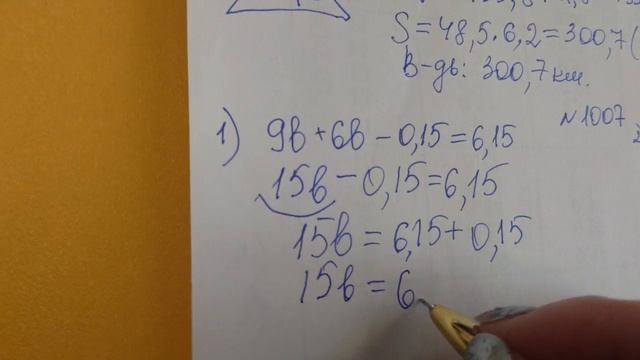 S=48,5·6,2=300,7(
В-дь: 300,7 км.
№1007
1) 9в+6в-0,15=6,15
15в-0,15=6,15
15в=6,15+0,15
15в=6